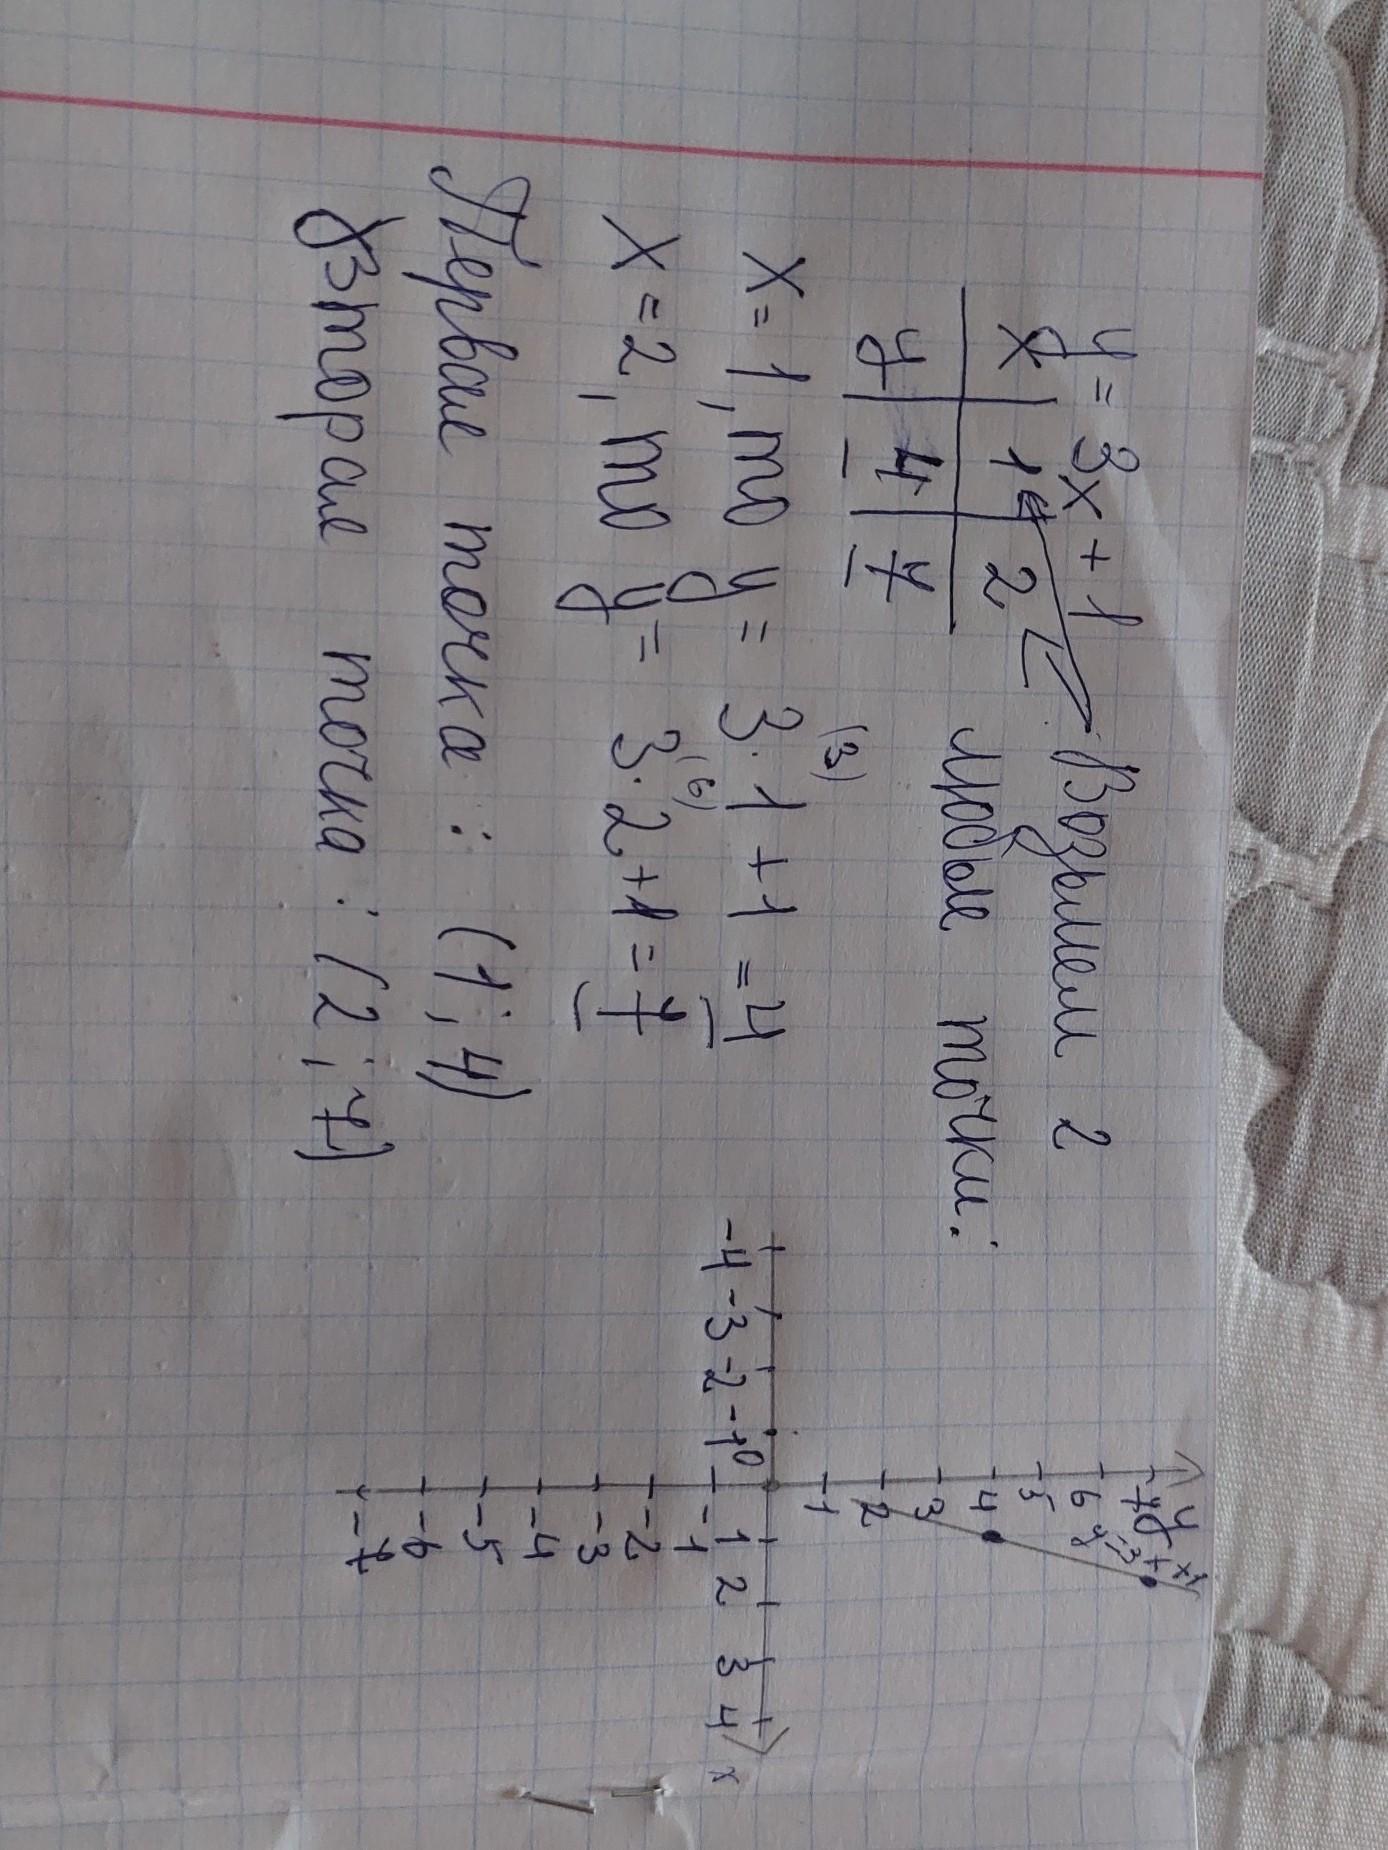 y = 3x + 1
x 1 2
y 4 7
Возьмем 2
любые точки:
(3)
x = 1, то y = 3·1 + 1 = 4
(6)
x = 2, то y = 3·2 + 1 = 7
Первая точка: (1; 4)
Вторая точка: (2; 7)
y
7
6
5
4
3
2
1
-4 -3 -2 -1 0 1 2 3 4 x
-1
-2
-3
-4
-5
-6
-7